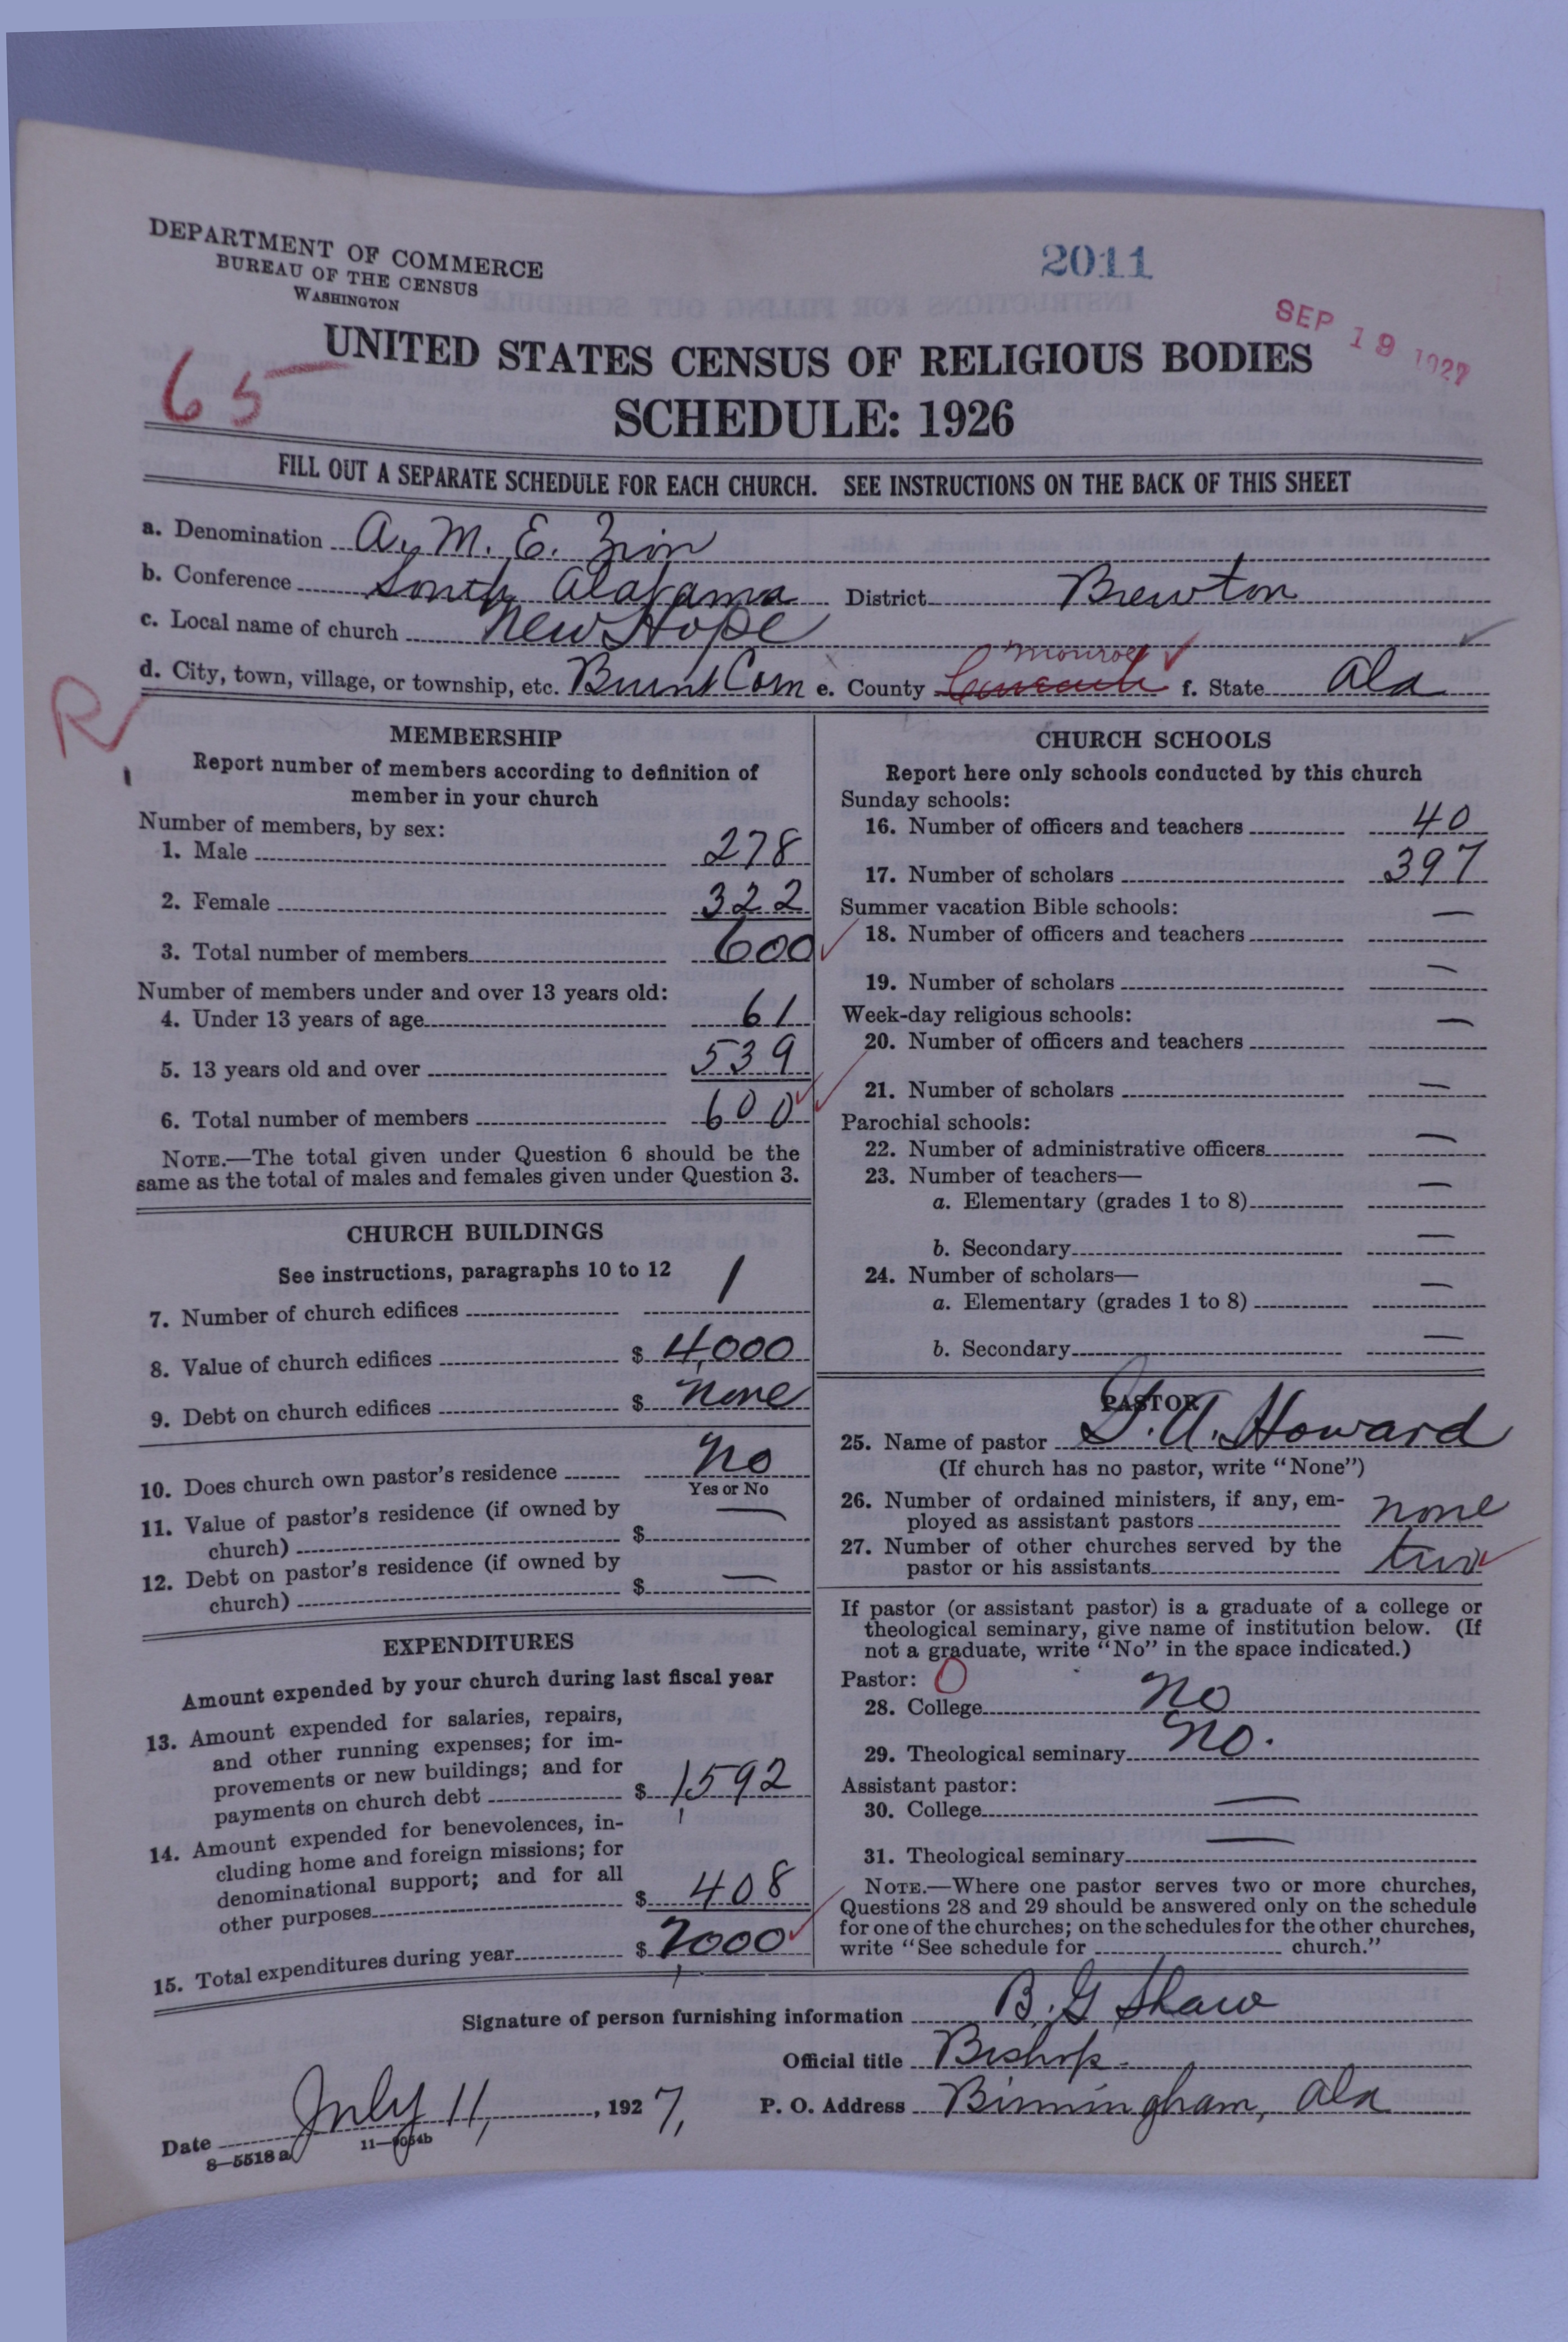 DEPARTMENT OF COMMERCE
BUREAU OF THE CENSUS
WASHINGTON
2011
SEP 19 1927
65
UNITED STATES CENSUS OF RELIGIOUS BODIES
SCHEDULE: 1926
FILL OUT A SEPARATE SCHEDULE FOR EACH CHURCH. SEE INSTRUCTIONS ON THE BACK OF THIS SHEET
a. Denomination A. M. E. Zion
b. Conference South Alabama District Brewton
c. Local name of church New Hope
Monroe
d. City, town, village, or township, etc. Burnt Corn e. County f. State Ala
R
MEMBERSHIP
Report number of members according to definition of
member in your church
Number of members, by sex:
1. Male 278
2. Female 322
3. Total number of members 600
Number of members under and over 13 years old:
4. Under 13 years of age 61
5. 13 years old and over 539
6. Total number of members 600
NOTE.—The total given under Question 6 should be the
same as the total of males and females given under Question 3.
CHURCH BUILDINGS
See instructions, paragraphs 10 to 12
7. Number of church edifices 1
8. Value of church edifices $ 4,000
9. Debt on church edifices $ none
10. Does church own pastor's residence no
Yes or No
11. Value of pastor's residence (if owned by
church) $ —
12. Debt on pastor's residence (if owned by
church) $ —
EXPENDITURES
Amount expended by your church during last fiscal year
13. Amount expended for salaries, repairs,
and other running expenses; for im-
provements or new buildings; and for
payments on church debt $ 1,592
14. Amount expended for benevolences, in-
cluding home and foreign missions; for
denominational support; and for all
other purposes $ 408
15. Total expenditures during year $ 2,000
CHURCH SCHOOLS
Report here only schools conducted by this church
Sunday schools:
16. Number of officers and teachers 40
17. Number of scholars 397
Summer vacation Bible schools:
18. Number of officers and teachers —
19. Number of scholars —
Week-day religious schools:
20. Number of officers and teachers —
21. Number of scholars —
Parochial schools:
22. Number of administrative officers —
23. Number of teachers—
a. Elementary (grades 1 to 8) —
b. Secondary —
24. Number of scholars—
a. Elementary (grades 1 to 8) —
b. Secondary —
PASTOR
25. Name of pastor A. Howard
(If church has no pastor, write "None")
26. Number of ordained ministers, if any, em-
ployed as assistant pastors none
27. Number of other churches served by the
pastor or his assistants two
If pastor (or assistant pastor) is a graduate of a college or
theological seminary, give name of institution below. (If
not a graduate, write "No" in the space indicated.)
Pastor: O
28. College no
29. Theological seminary no.
Assistant pastor:
30. College —
31. Theological seminary —
NOTE.—Where one pastor serves two or more churches,
Questions 28 and 29 should be answered only on the schedule
for one of the churches; on the schedules for the other churches,
write "See schedule for church."
Signature of person furnishing information B. G Shaw
Official title Bishop
Date July 11, 1927, P. O. Address Birmingham, Ala
8—5518 a 11—9054b